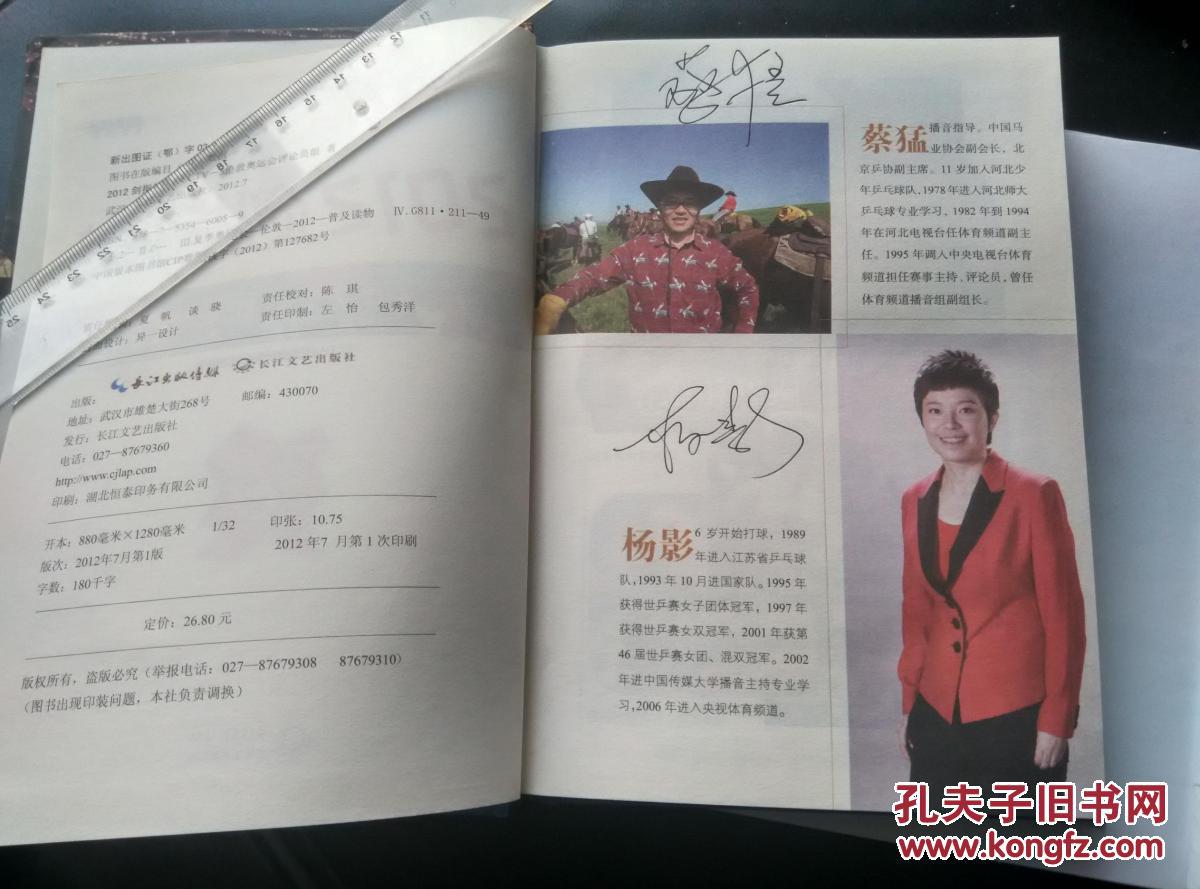 新出图证（鄂）字03
图书在版编目
2012
伦敦奥运会评论员组 著
2012.7
5354—6005—9
—伦敦—2012—普及读物 Ⅳ.G811·211—49
中国版本图书馆CIP
(2012)第127682号
夏 帆 谈 骁 责任校对：陈 琪
设计：异一设计 责任印制：左 怡 包秀洋
出版：长江出版传媒 长江文艺出版社
地址：武汉市雄楚大街268号 邮编：430070
发行：长江文艺出版社
电话：027—87679360
http://www.cjlap.com
印刷：湖北恒泰印务有限公司
开本：880毫米×1280毫米 1/32 印张：10.75
版次：2012年7月第1版 2012年7月第1次印刷
字数：180千字
定价：26.80元
版权所有，盗版必究（举报电话：027—87679308 87679310）
（图书出现印装问题，本社负责调换）
12
13
14
15
16
17
18
19
20
21
22
23
24
25
蔡猛
蔡猛 播音指导。中国马
业协会副会长，北
京乒协副主席。11岁加入河北少
年乒乓球队，1978年进入河北师大
乒乓球专业学习，1982年到1994
年在河北电视台任体育频道副主
任。1995年调入中央电视台体育
频道担任赛事主持、评论员，曾任
体育频道播音组副组长。
杨影
杨影 6岁开始打球，1989
年进入江苏省乒乓球
队，1993年10月进国家队。1995年
获得世乒赛女子团体冠军，1997年
获得世乒赛女双冠军，2001年获第
46届世乒赛女团、混双冠军。2002
年进中国传媒大学播音主持专业学
习，2006年进入央视体育频道。
孔夫子旧书网
www.kongfz.com